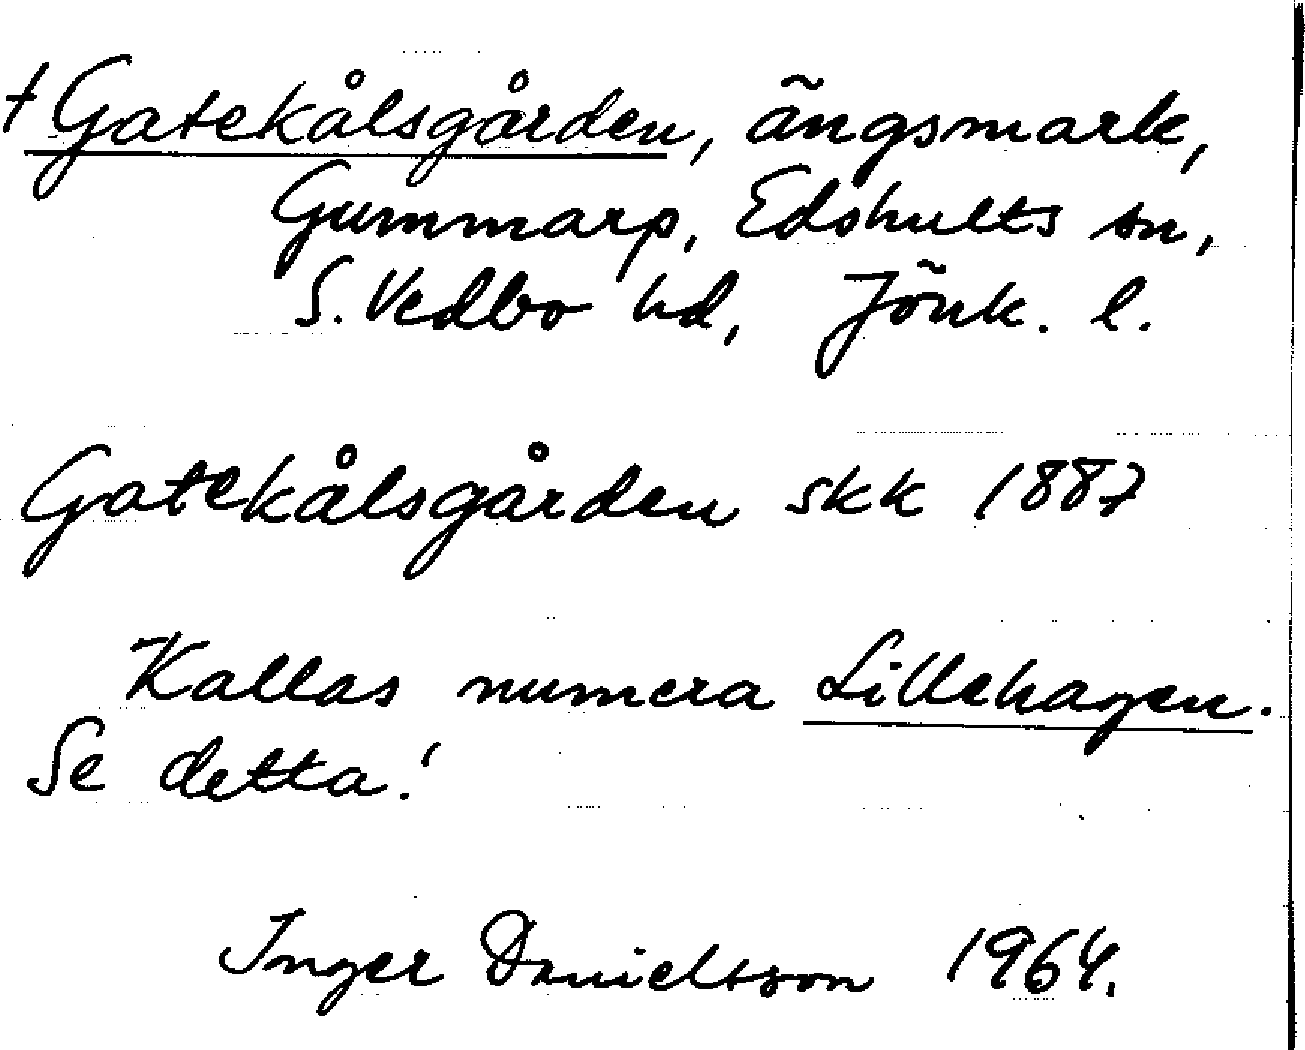 † Gatekålsgården, ängsmark,
Gummarp, Edshults sn,
S. Vedbo hd, Jönk. l.
Gatekålsgården skk 1887
Kallas numera Lillehagen.
Se detta!
Inger Danielsson 1964.